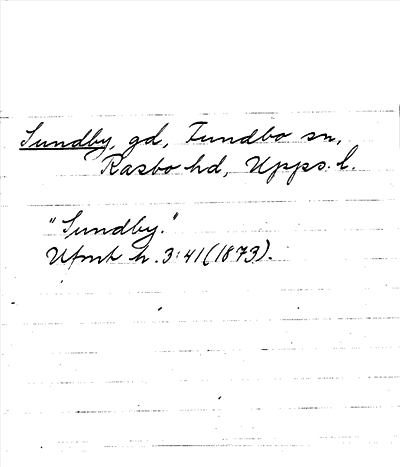 Sundby, gd, Funbo sn,
Rasbo hd, Upps. l.
"Sundby."
Ufmt h. 3:41 (1873).